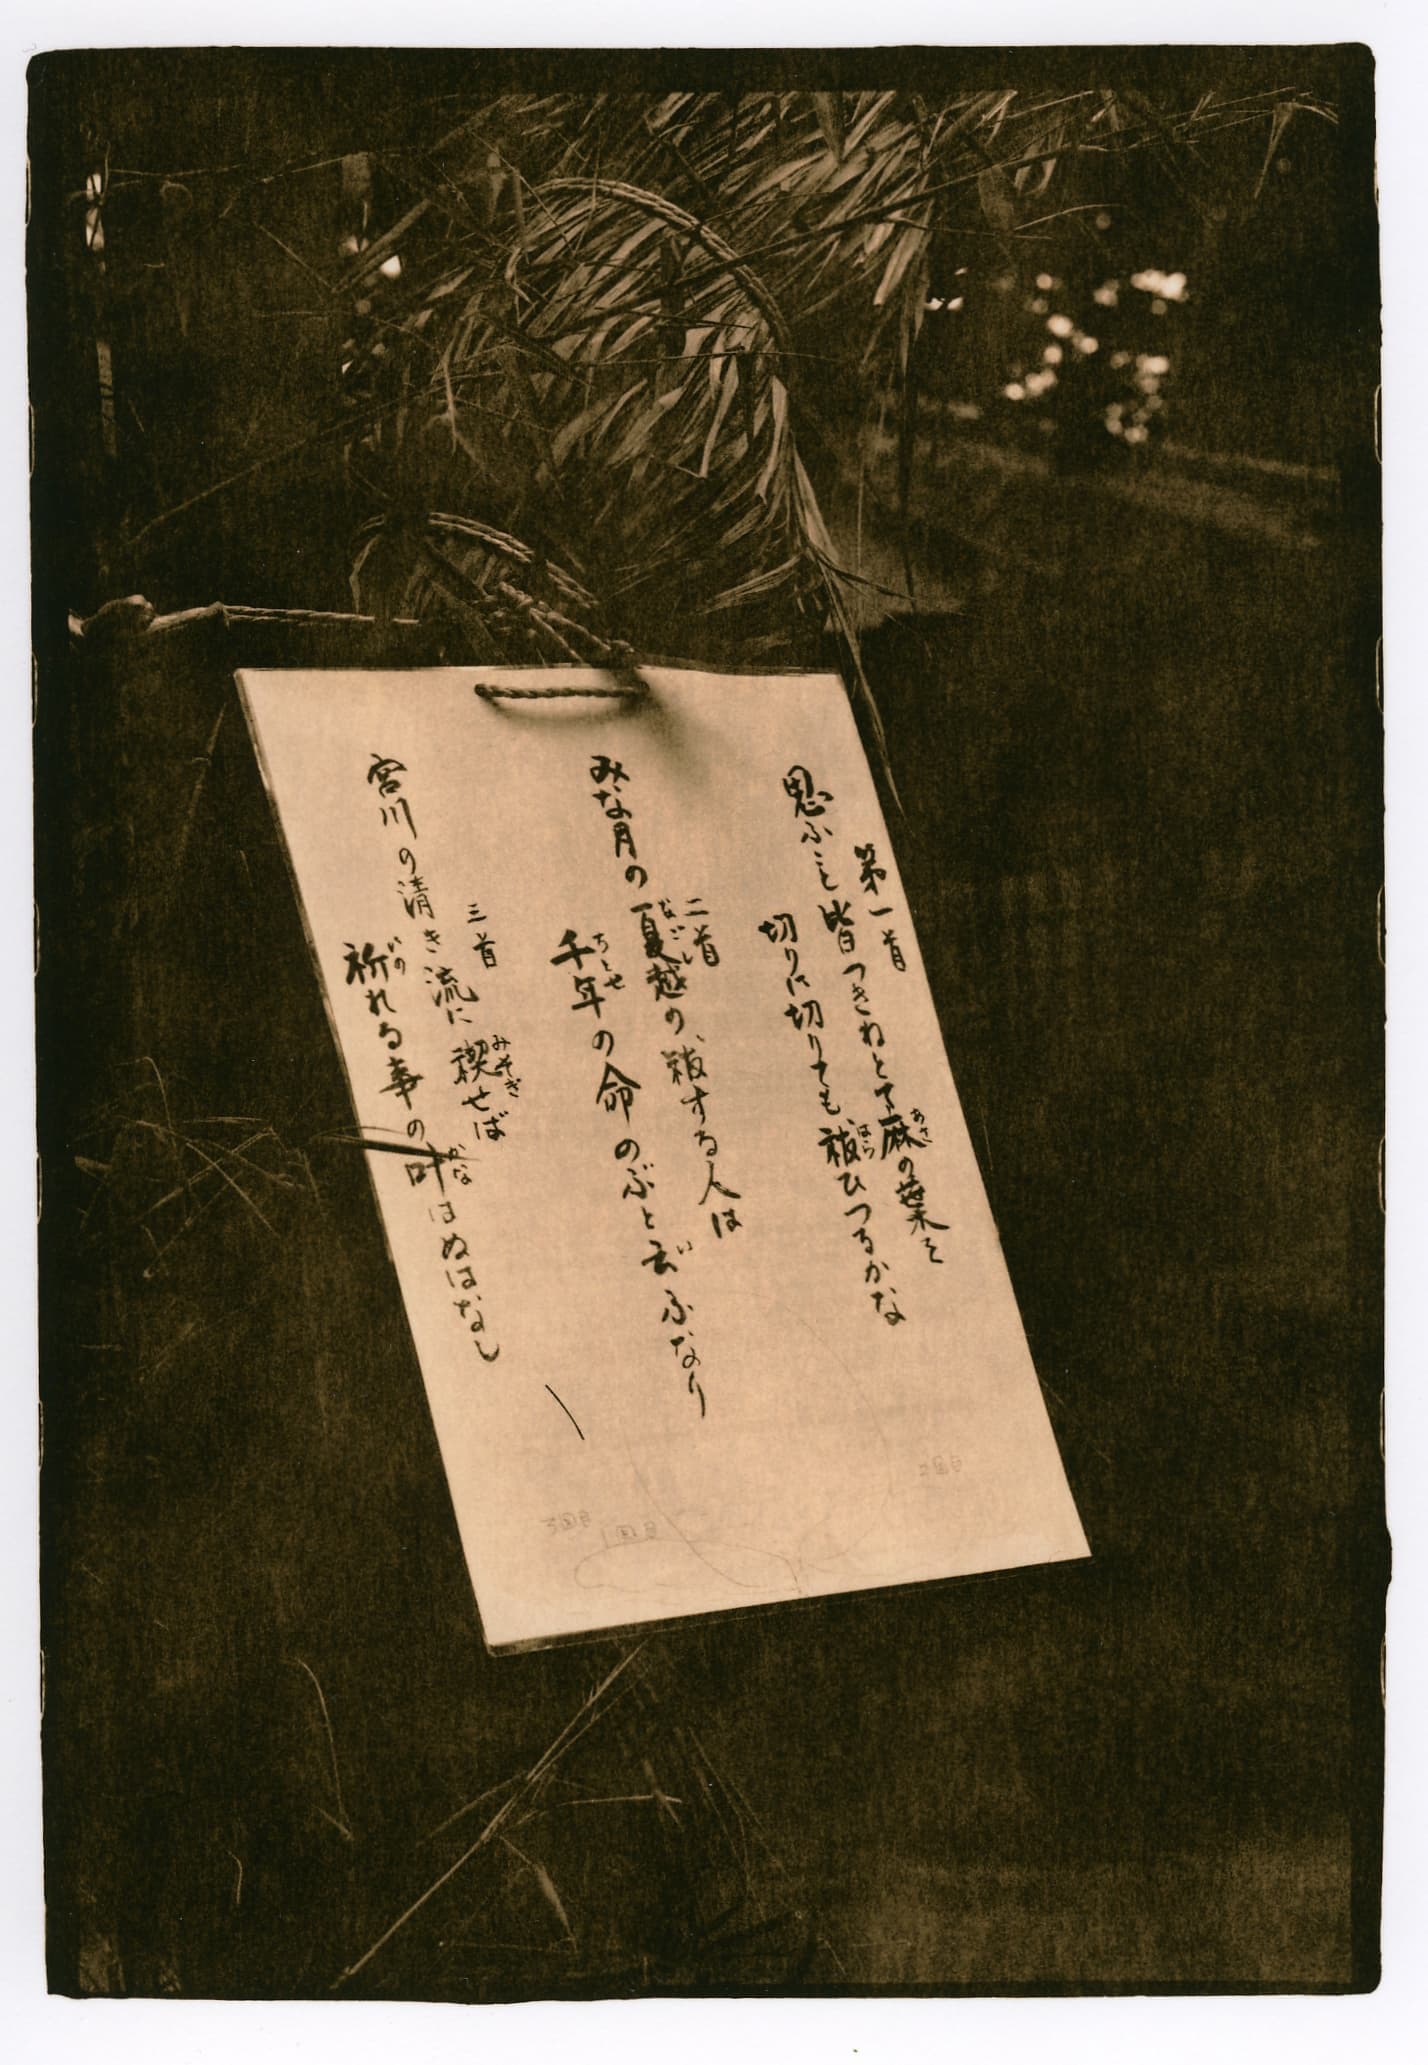 第一首
思ふこと皆つきねとて麻の葉を
あさ
切りに切りても祓ひつるかな
はら
二首
みな月の夏越の、祓する人は
なごし
千年の命のぶと云ふなり
ちとせ
い
三首
宮川の清き流に禊せば
みそぎ
祈れる事の叶はぬはなし
いの
かな
2回目
3回目
1回目